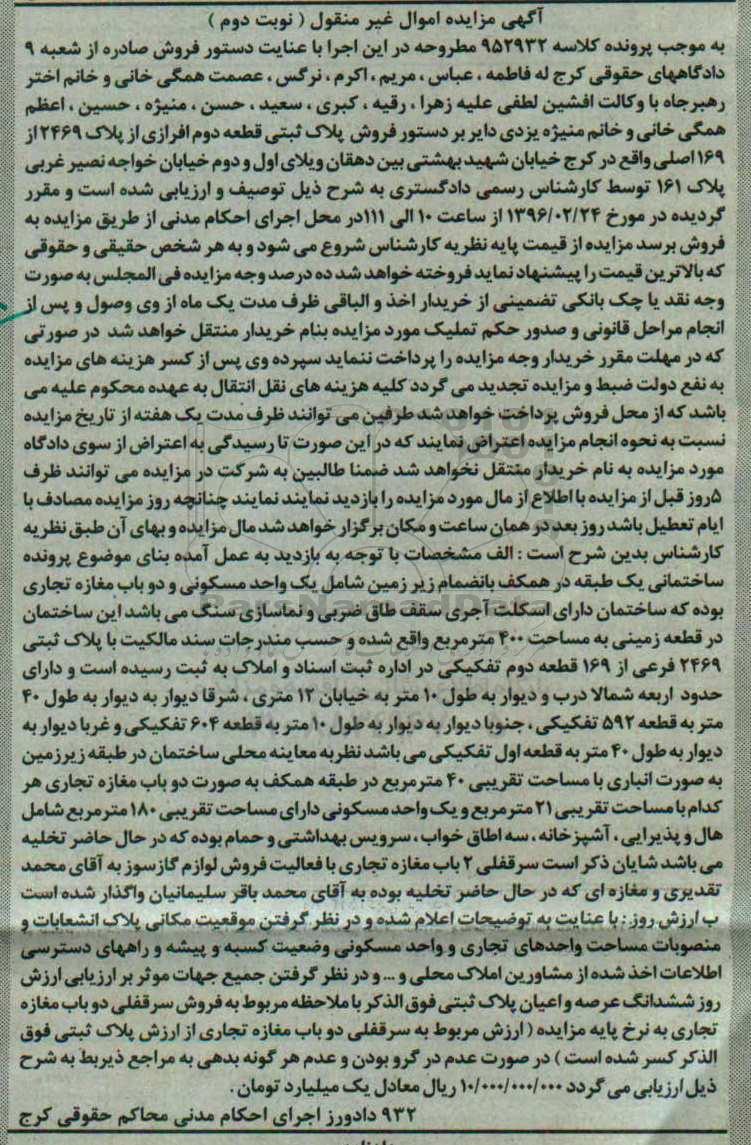 آگهی مزایده اموال غیر منقول ( نوبت دوم )
به موجب پرونده کلاسه ۹۵۲۹۳۲ مطروحه در این اجرا با عنایت دستور فروش صادره از شعبه ۹
دادگاههای حقوقی کرج له فاطمه ، عباس ، مریم ، اکرم ، نرگس ، عصمت همگی خانی و خانم اختر
رهبرجاه با وکالت افشین لطفی علیه زهرا ، رقیه ، کبری ، سعید ، حسن ، منیژه ، حسین ، اعظم
همگی خانی و خانم منیژه یزدی دایر بر دستور فروش پلاک ثبتی قطعه دوم افرازی از پلاک ۲۴۶۹ از
۱۶۹ اصلی واقع در کرج خیابان شهید بهشتی بین دهقان ویلای اول و دوم خیابان خواجه نصیر غربی
پلاک ۱۶۱ توسط کارشناس رسمی دادگستری به شرح ذیل توصیف و ارزیابی شده است و مقرر
گردیده در مورخ ۱۳۹۶/۰۲/۲۴ از ساعت ۱۰ الی ۱۱۱در محل اجرای احکام مدنی از طریق مزایده به
فروش برسد مزایده از قیمت پایه نظریه کارشناس شروع می شود و به هر شخص حقیقی و حقوقی
که بالاترین قیمت را پیشنهاد نماید فروخته خواهد شد ده درصد وجه مزایده فی المجلس به صورت
وجه نقد یا چک بانکی تضمینی از خریدار اخذ و الباقی ظرف مدت یک ماه از وی وصول و پس از
انجام مراحل قانونی و صدور حکم تملیک مورد مزایده بنام خریدار منتقل خواهد شد در صورتی
که در مهلت مقرر خریدار وجه مزایده را پرداخت ننماید سپرده وی پس از کسر هزینه های مزایده
به نفع دولت ضبط و مزایده تجدید می گردد کلیه هزینه های نقل انتقال به عهده محکوم علیه می
باشد که از محل فروش پرداخت خواهد شد طرفین می توانند ظرف مدت یک هفته از تاریخ مزایده
نسبت به نحوه انجام مزایده اعتراض نمایند که در این صورت تا رسیدگی به اعتراض از سوی دادگاه
مورد مزایده به نام خریدار منتقل نخواهد شد ضمنا طالبین به شرکت در مزایده می توانند ظرف
۵روز قبل از مزایده با اطلاع از مال مورد مزایده را بازدید نمایند نمایند چنانچه روز مزایده مصادف با
ایام تعطیل باشد روز بعد در همان ساعت و مکان برگزار خواهد شد مال مزایده و بهای آن طبق نظریه
کارشناس بدین شرح است : الف مشخصات با توجه به بازدید به عمل آمده بنای موضوع پرونده
ساختمانی یک طبقه در همکف بانضمام زیر زمین شامل یک واحد مسکونی و دو باب مغازه تجاری
بوده که ساختمان دارای اسکلت آجری سقف طاق ضربی و نماسازی سنگ می باشد این ساختمان
در قطعه زمینی به مساحت ۴۰۰ مترمربع واقع شده و حسب مندرجات سند مالکیت با پلاک ثبتی
۲۴۶۹ فرعی از ۱۶۹ قطعه دوم تفکیکی در اداره ثبت اسناد و املاک به ثبت رسیده است و دارای
حدود اربعه شمالا درب و دیوار به طول ۱۰ متر به خیابان ۱۲ متری ، شرقا دیوار به دیوار به طول ۴۰
متر به قطعه ۵۹۲ تفکیکی ، جنوبا دیوار به دیوار به طول ۱۰ متر به قطعه ۶۰۴ تفکیکی و غربا دیوار به
دیوار به طول ۴۰ متر به قطعه اول تفکیکی می باشد نظربه معاینه محلی ساختمان در طبقه زیرزمین
به صورت انباری با مساحت تقریبی ۴۰ مترمربع در طبقه همکف به صورت دو باب مغازه تجاری هر
کدام با مساحت تقریبی ۲۱ مترمربع و یک واحد مسکونی دارای مساحت تقریبی ۱۸۰ مترمربع شامل
هال و پذیرایی ، آشپزخانه ، سه اطاق خواب ، سرویس بهداشتی و حمام بوده که در حال حاضر تخلیه
می باشد شایان ذکر است سرقفلی ۲ باب مغازه تجاری با فعالیت فروش لوازم گازسوز به آقای محمد
تقدیری و مغازه ای که در حال حاضر تخلیه بوده به آقای محمد باقر سلیمانیان واگذار شده است
ب ارزش روز : با عنایت به توضیحات اعلام شده و در نظر گرفتن موقعیت مکانی پلاک انشعابات و
منصوبات مساحت واحدهای تجاری و واحد مسکونی وضعیت کسبه و پیشه و راههای دسترسی
اطلاعات اخذ شده از مشاورین املاک محلی و ... و در نظر گرفتن جمیع جهات موثر بر ارزیابی ارزش
روز ششدانگ عرصه و اعیان پلاک ثبتی فوق الذکر با ملاحظه مربوط به فروش سرقفلی دو باب مغازه
تجاری به نرخ پایه مزایده ( ارزش مربوط به سرقفلی دو باب مغازه تجاری از ارزش پلاک ثبتی فوق
الذکر کسر شده است ) در صورت عدم در گرو بودن و عدم هر گونه بدهی به مراجع ذیربط به شرح
ذیل ارزیابی می گردد ۱۰/۰۰۰/۰۰۰/۰۰۰ ریال معادل یک میلیارد تومان .
۹۳۲ دادورز اجرای احکام مدنی محاکم حقوقی کرج